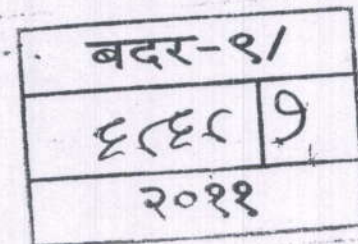 बदर-९/
६८६८ १
२०११